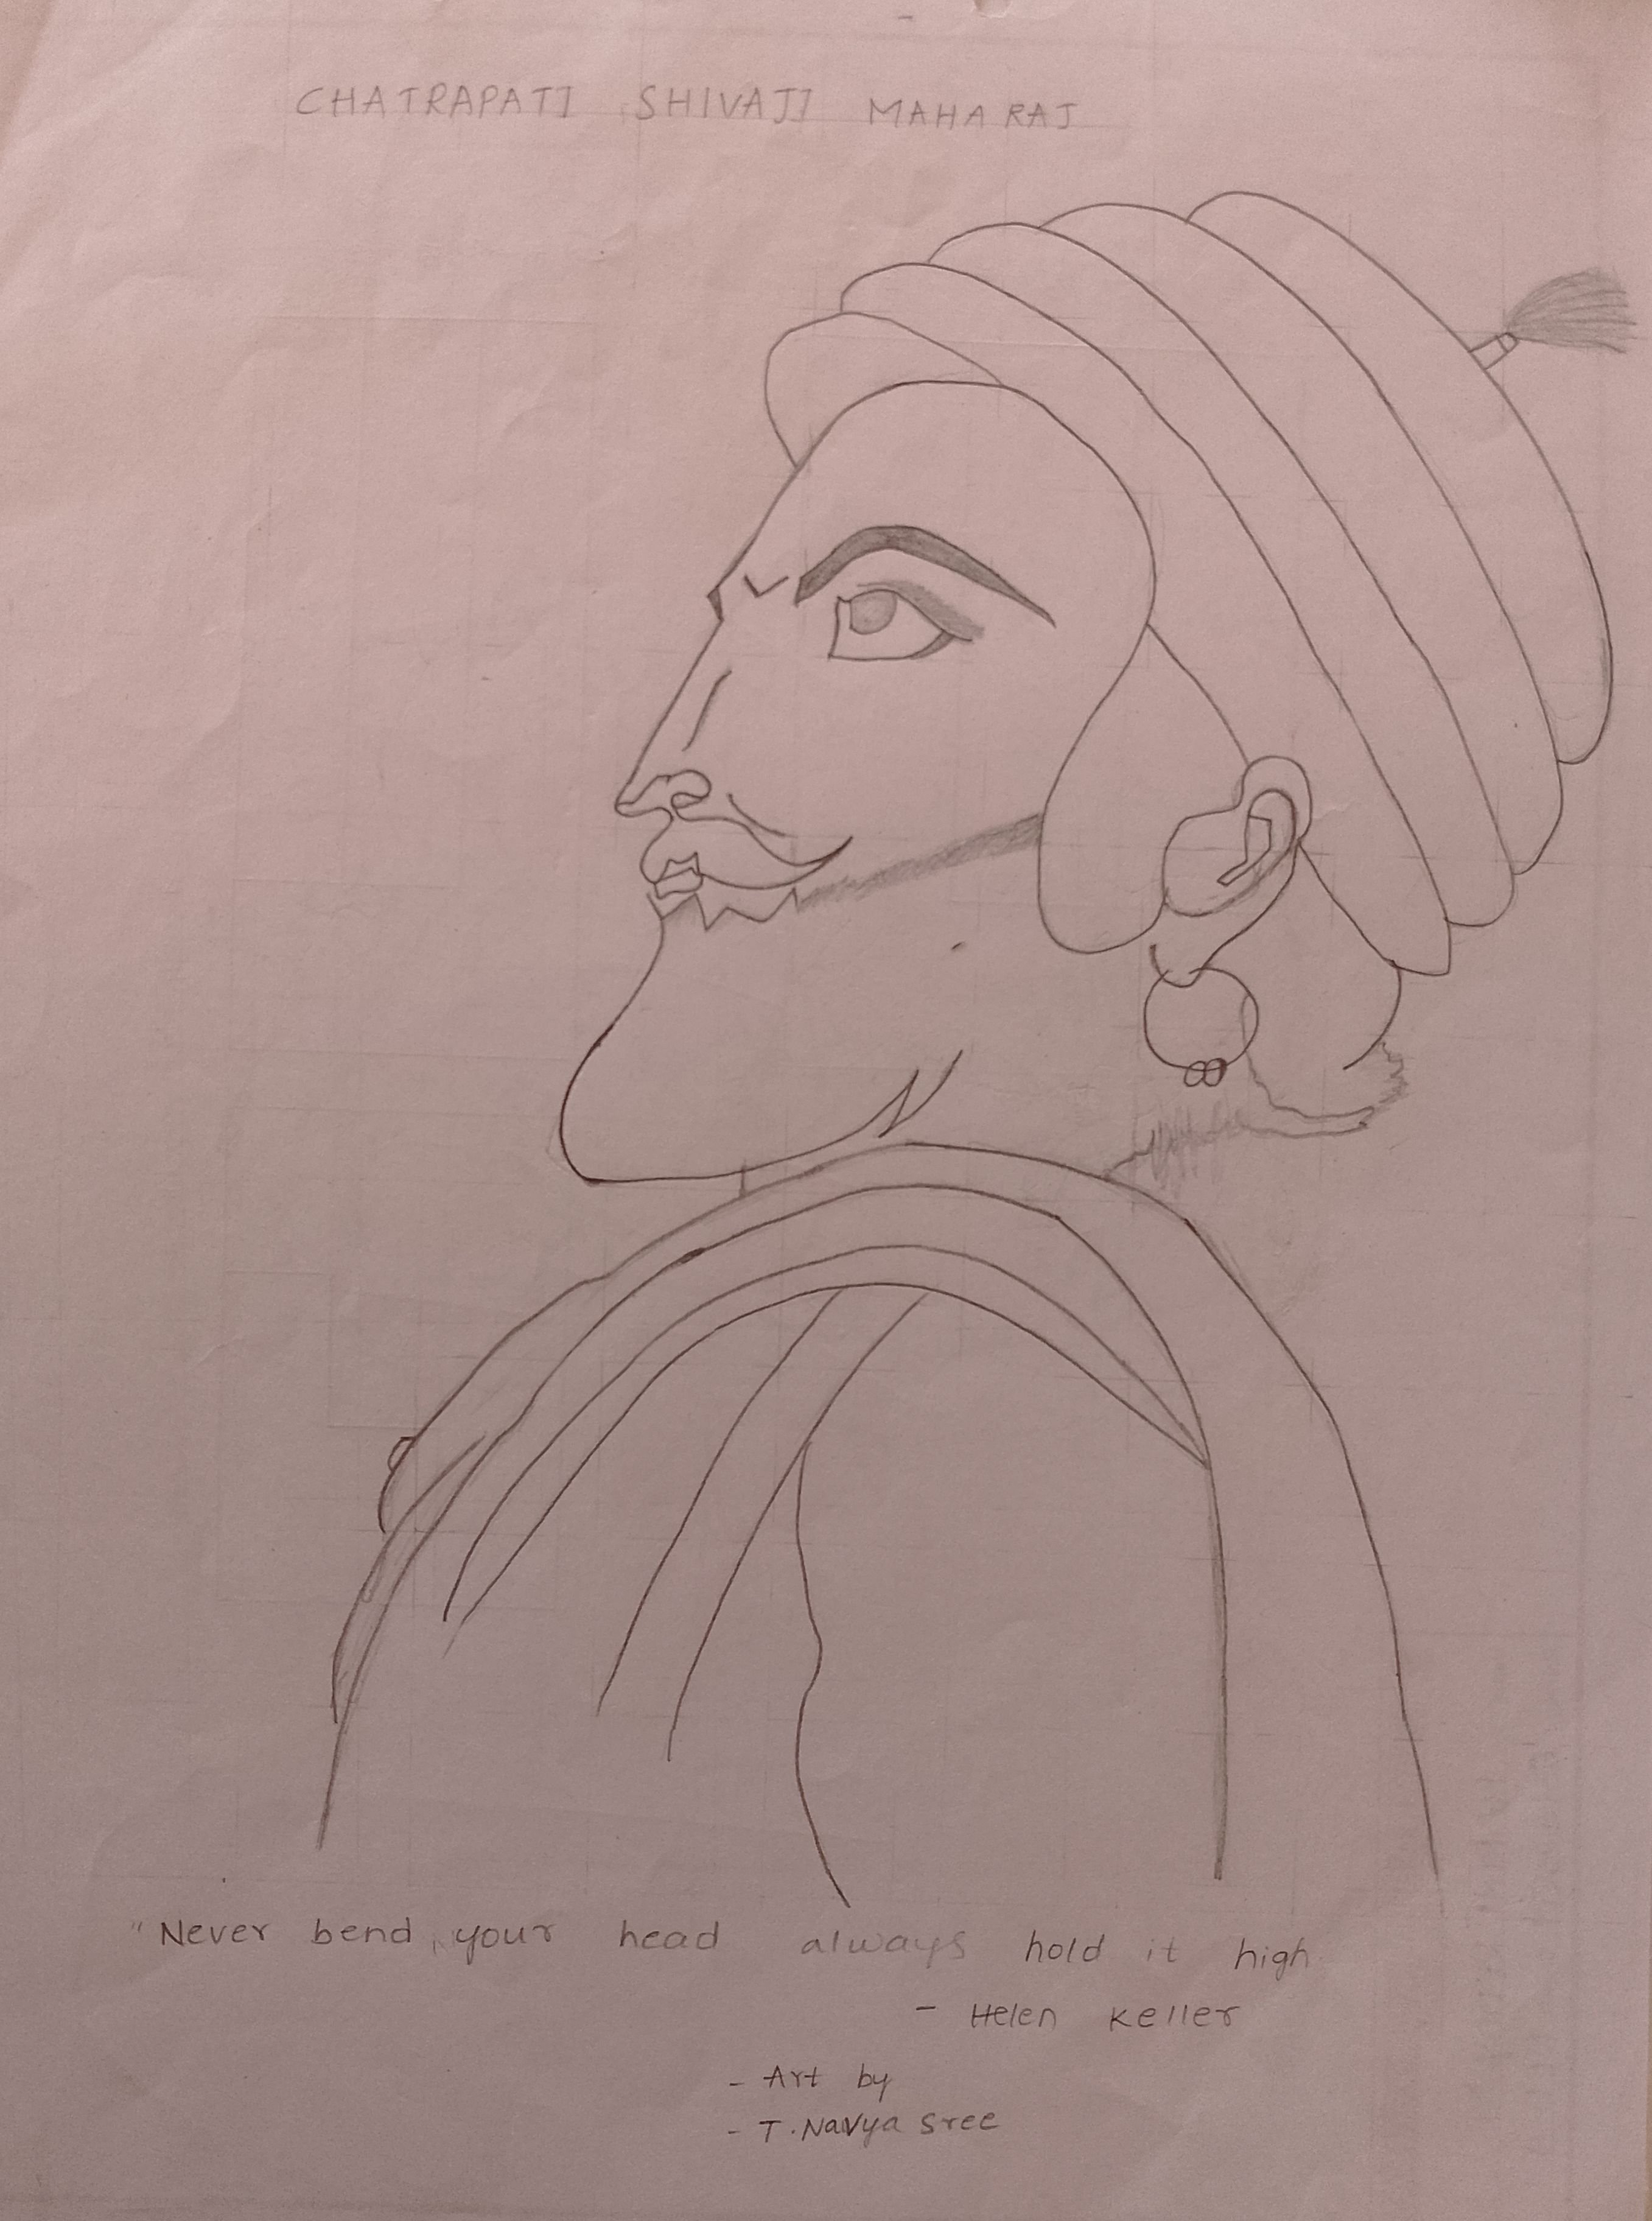 CHATRAPATI SHIVAJI MAHARAJ
"Never bend your head always hold it high
- Helen Keller
- Art by
- T. Navya Sree